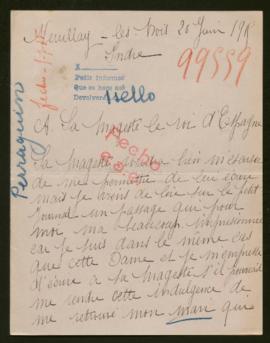 Meullay - les Bois 20 Juin 19
Indre
99559
Petit Informe
Que se haga así
Devolver
sello
Perraguin
Fecho
A. Sa Magesté le roi d'Espagne
Sa Magesté voudra bien m'excuser
de me permettre de lui écrire
mais je viens de lire sur le petit
Journal un passage qui pour
moi ma beaucoup impressionnée
car je suis dans le même cas
que cette Dame et je m'empresse
d'écrire à sa Magesté s'il pourrait
me rendre cette indulgence de
me retrouvé mon mari qui